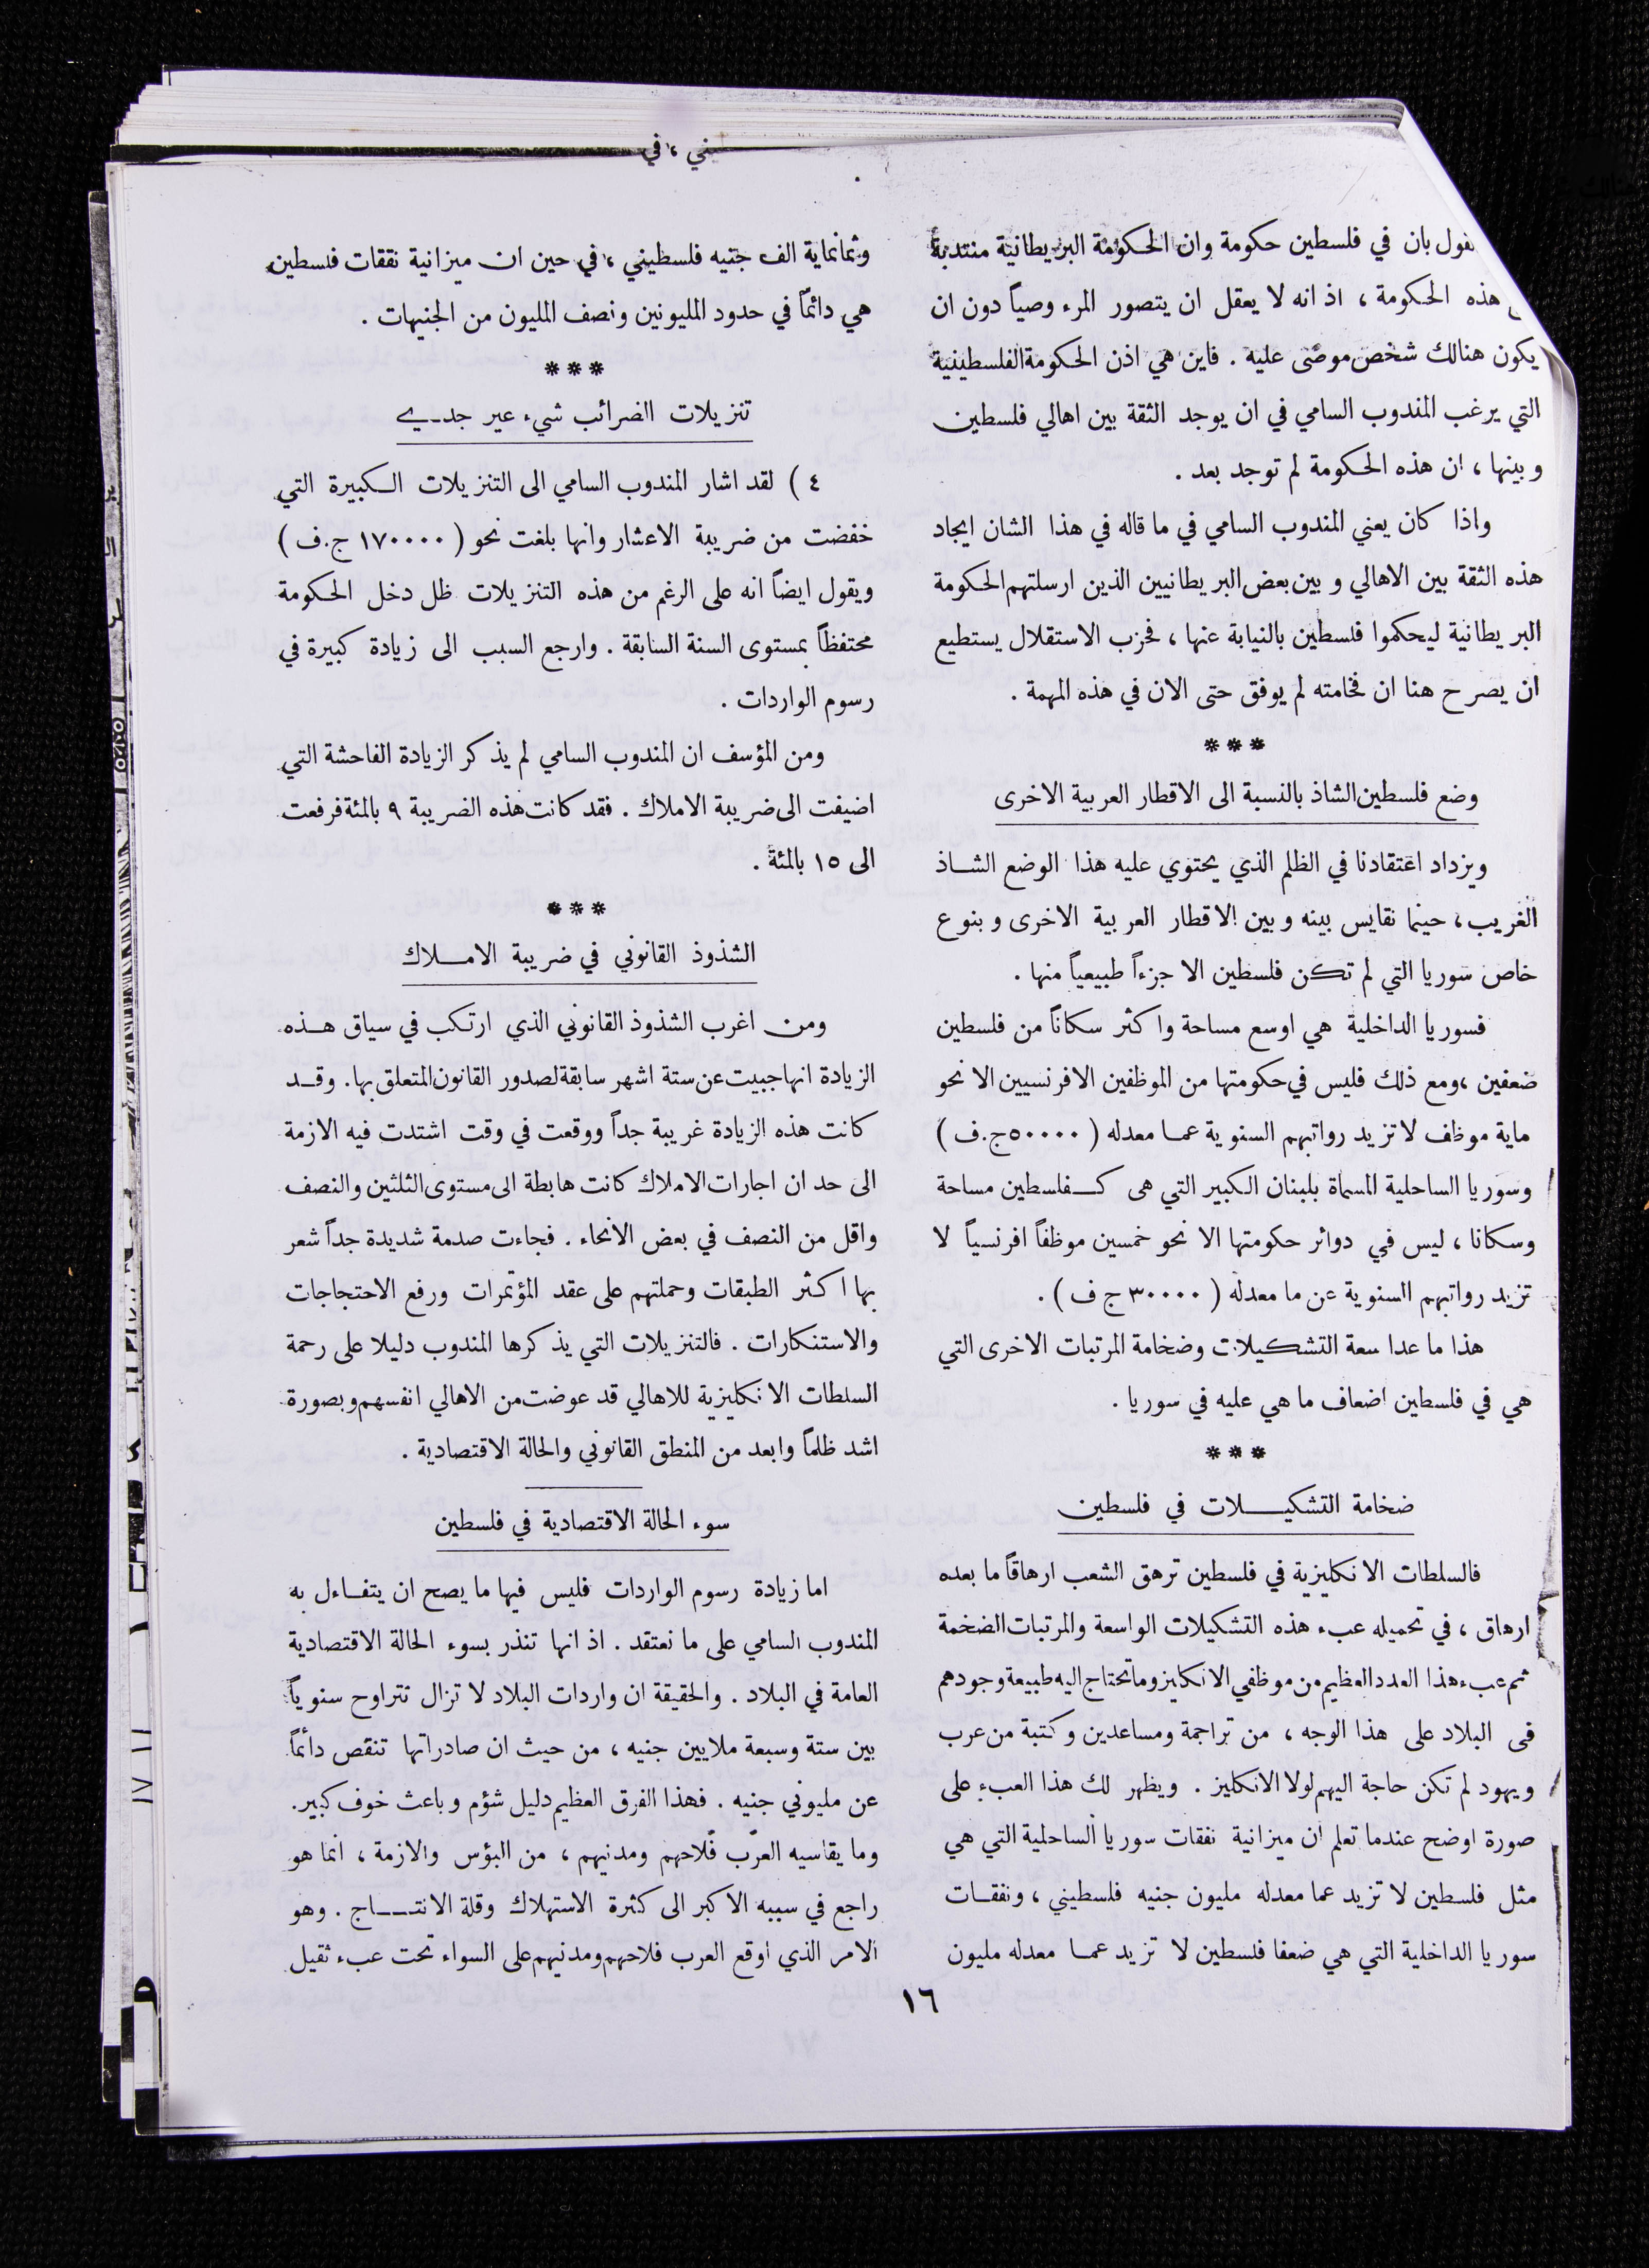 يني ، في
نقول بان في فلسطين حكومة وان الحكومة البريطانية منتدبة
هذه الحكومة ، اذ انه لا يعقل ان يتصور المرء وصياً دون ان
يكون هنالك شخص موصًى عليه . فاين هي اذن الحكومة الفلسطينية
التي يرغب المندوب السامي في ان يوجد الثقة بين اهالي فلسطين
وبينها ، ان هذه الحكومة لم توجد بعد .
واذا كان يعني المندوب السامي في ما قاله في هذا الشان ايجاد
هذه الثقة بين الاهالي وبين بعض البريطانيين الذين ارسلتهم الحكومة
البريطانية ليحكموا فلسطين بالنيابة عنها ، فحزب الاستقلال يستطيع
ان يصرح هنا ان فخامته لم يوفق حتى الان في هذه المهمة .
***
وضع فلسطين الشاذ بالنسبة الى الاقطار العربية الاخرى
ويزداد اعتقادنا في الظلم الذي يحتوي عليه هذا الوضع الشاذ
الغريب ، حينما نقايس بينه وبين الاقطار العربية الاخرى وبنوع
خاص سوريا التي لم تكن فلسطين الا جزءاً طبيعياً منها .
فسوريا الداخلية هي اوسع مساحة واكثر سكاناً من فلسطين
ضعفين ، ومع ذلك فليس في حكومتها من الموظفين الافرنسيين الا نحو
ماية موظف لا تزيد رواتبهم السنوية عما معدله ( ٥٠٠٠٠ ج.ف )
وسوريا الساحلية المسماة بلبنان الكبير التي هى كفلسطين مساحة
وسكانا ، ليس في دوائر حكومتها الا نحو خمسين موظفاً افرنسياً لا
تزيد رواتبهم السنوية عن ما معدله ( ٣٠٠٠٠ ج ف ) .
هذا ما عدا سعة التشكيلات وضخامة المرتبات الاخرى التي
هي في فلسطين اضعاف ما هي عليه في سوريا .
***
ضخامة التشكيلات في فلسطين
فالسلطات الانكليزية في فلسطين ترهق الشعب ارهاقاً ما بعده
ارهاق ، في تحميله عبء هذه التشكيلات الواسعة والمرتبات الضخمة
ثم عبء هذا العدد العظيم من موظفي الانكليز وما تحتاج اليه طبيعة وجودهم
فى البلاد على هذا الوجه ، من تراجمة ومساعدين وكتبة من عرب
ويهود لم تكن حاجة اليهم لولا الانكليز . ويظهر لك هذا العبء على
صورة اوضح عندما تعلم ان ميزانية نفقات سوريا الساحلية التي هي
مثل فلسطين لا تزيد عما معدله مليون جنيه فلسطيني ، ونفقات
سوريا الداخلية التي هي ضعفا فلسطين لا تزيد عما معدله مليون
وثمانماية الف جنيه فلسطيني ، في حين ان ميزانية نققات فلسطين
هي دائماً في حدود المليونين ونصف المليون من الجنيهات .
***
تنزيلات الضرائب شيء عير جدي
٤ ) لقد اشار المندوب السامي الى التنزيلات الكبيرة التي
خفضت من ضريبة الاعشار وانها بلغت نحو ( ١٧٠٠٠٠ ج.ف )
ويقول ايضاً انه على الرغم من هذه التنزيلات ظل دخل الحكومة
محتفظاً بمستوى السنة السابقة . وارجع السبب الى زيادة كبيرة في
رسوم الواردات .
ومن المؤسف ان المندوب السامي لم يذكر الزيادة الفاحشة التي
اضيفت الى ضريبة الاملاك . فقد كانت هذه الضريبة ٩ بالمئة فرفعت
الى ١٥ بالمئة .
***
الشذوذ القانوني في ضريبة الاملاك
ومن اغرب الشذوذ القانوني الذي ارتكب في سياق هذه
الزيادة انها جبيت عن ستة اشهر سابقة لصدور القانون المتعلق بها . وقد
كانت هذه الزيادة غريبة جداً ووقعت في وقت اشتدت فيه الازمة
الى حد ان اجارات الاملاك كانت هابطة الى مستوى الثلثين والنصف
واقل من النصف في بعض الانحاء . فجاءت صدمة شديدة جداً شعر
بها اكثر الطبقات وحملتهم على عقد المؤتمرات ورفع الاحتجاجات
والاستنكارات . فالتنزيلات التي يذكرها المندوب دليلا على رحمة
السلطات الانكليزية للاهالي قد عوضت من الاهالي انفسهم وبصورة
اشد ظلماً وابعد من المنطق القانوني والحالة الاقتصادية .
سوء الحالة الاقتصادية في فلسطين
اما زيادة رسوم الواردات فليس فيها ما يصح ان يتفاءل به
المندوب السامي على ما نعتقد . اذ انها تنذر بسوء الحالة الاقتصادية
العامة في البلاد . والحقيقة ان واردات البلاد لا تزال تتراوح سنوياً
بين ستة وسبعة ملايين جنيه ، من حيث ان صادراتها تنقص دائماً
عن مليوني جنيه . فهذا الفرق العظيم دليل شؤم وباعث خوف كبير .
وما يقاسيه العرب فلاحهم ومدنيهم ، من البؤس والازمة ، انما هو
راجع في سببه الاكبر الى كثرة الاستهلاك وقلة الانتاج . وهو
الامر الذي اوقع العرب فلاحهم ومدنيهم على السواء تحت عبء ثقيل
١٦